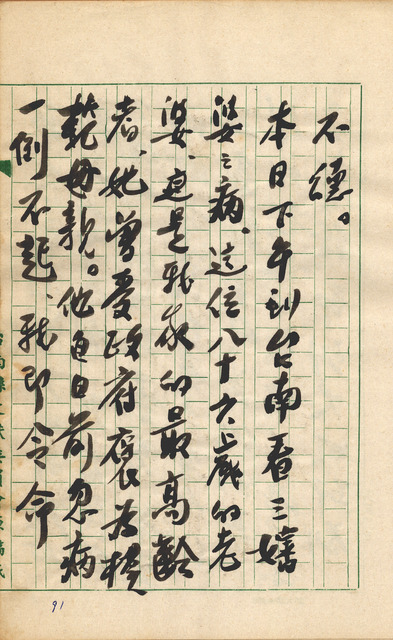 不
本日下午到台南看三嬸
婆之病、這位八十六歲的老
婆、這是我家的最高齡
者、她曾受政府褒為模
範母親。他 日前忽病
一倒不起、我即令命
91